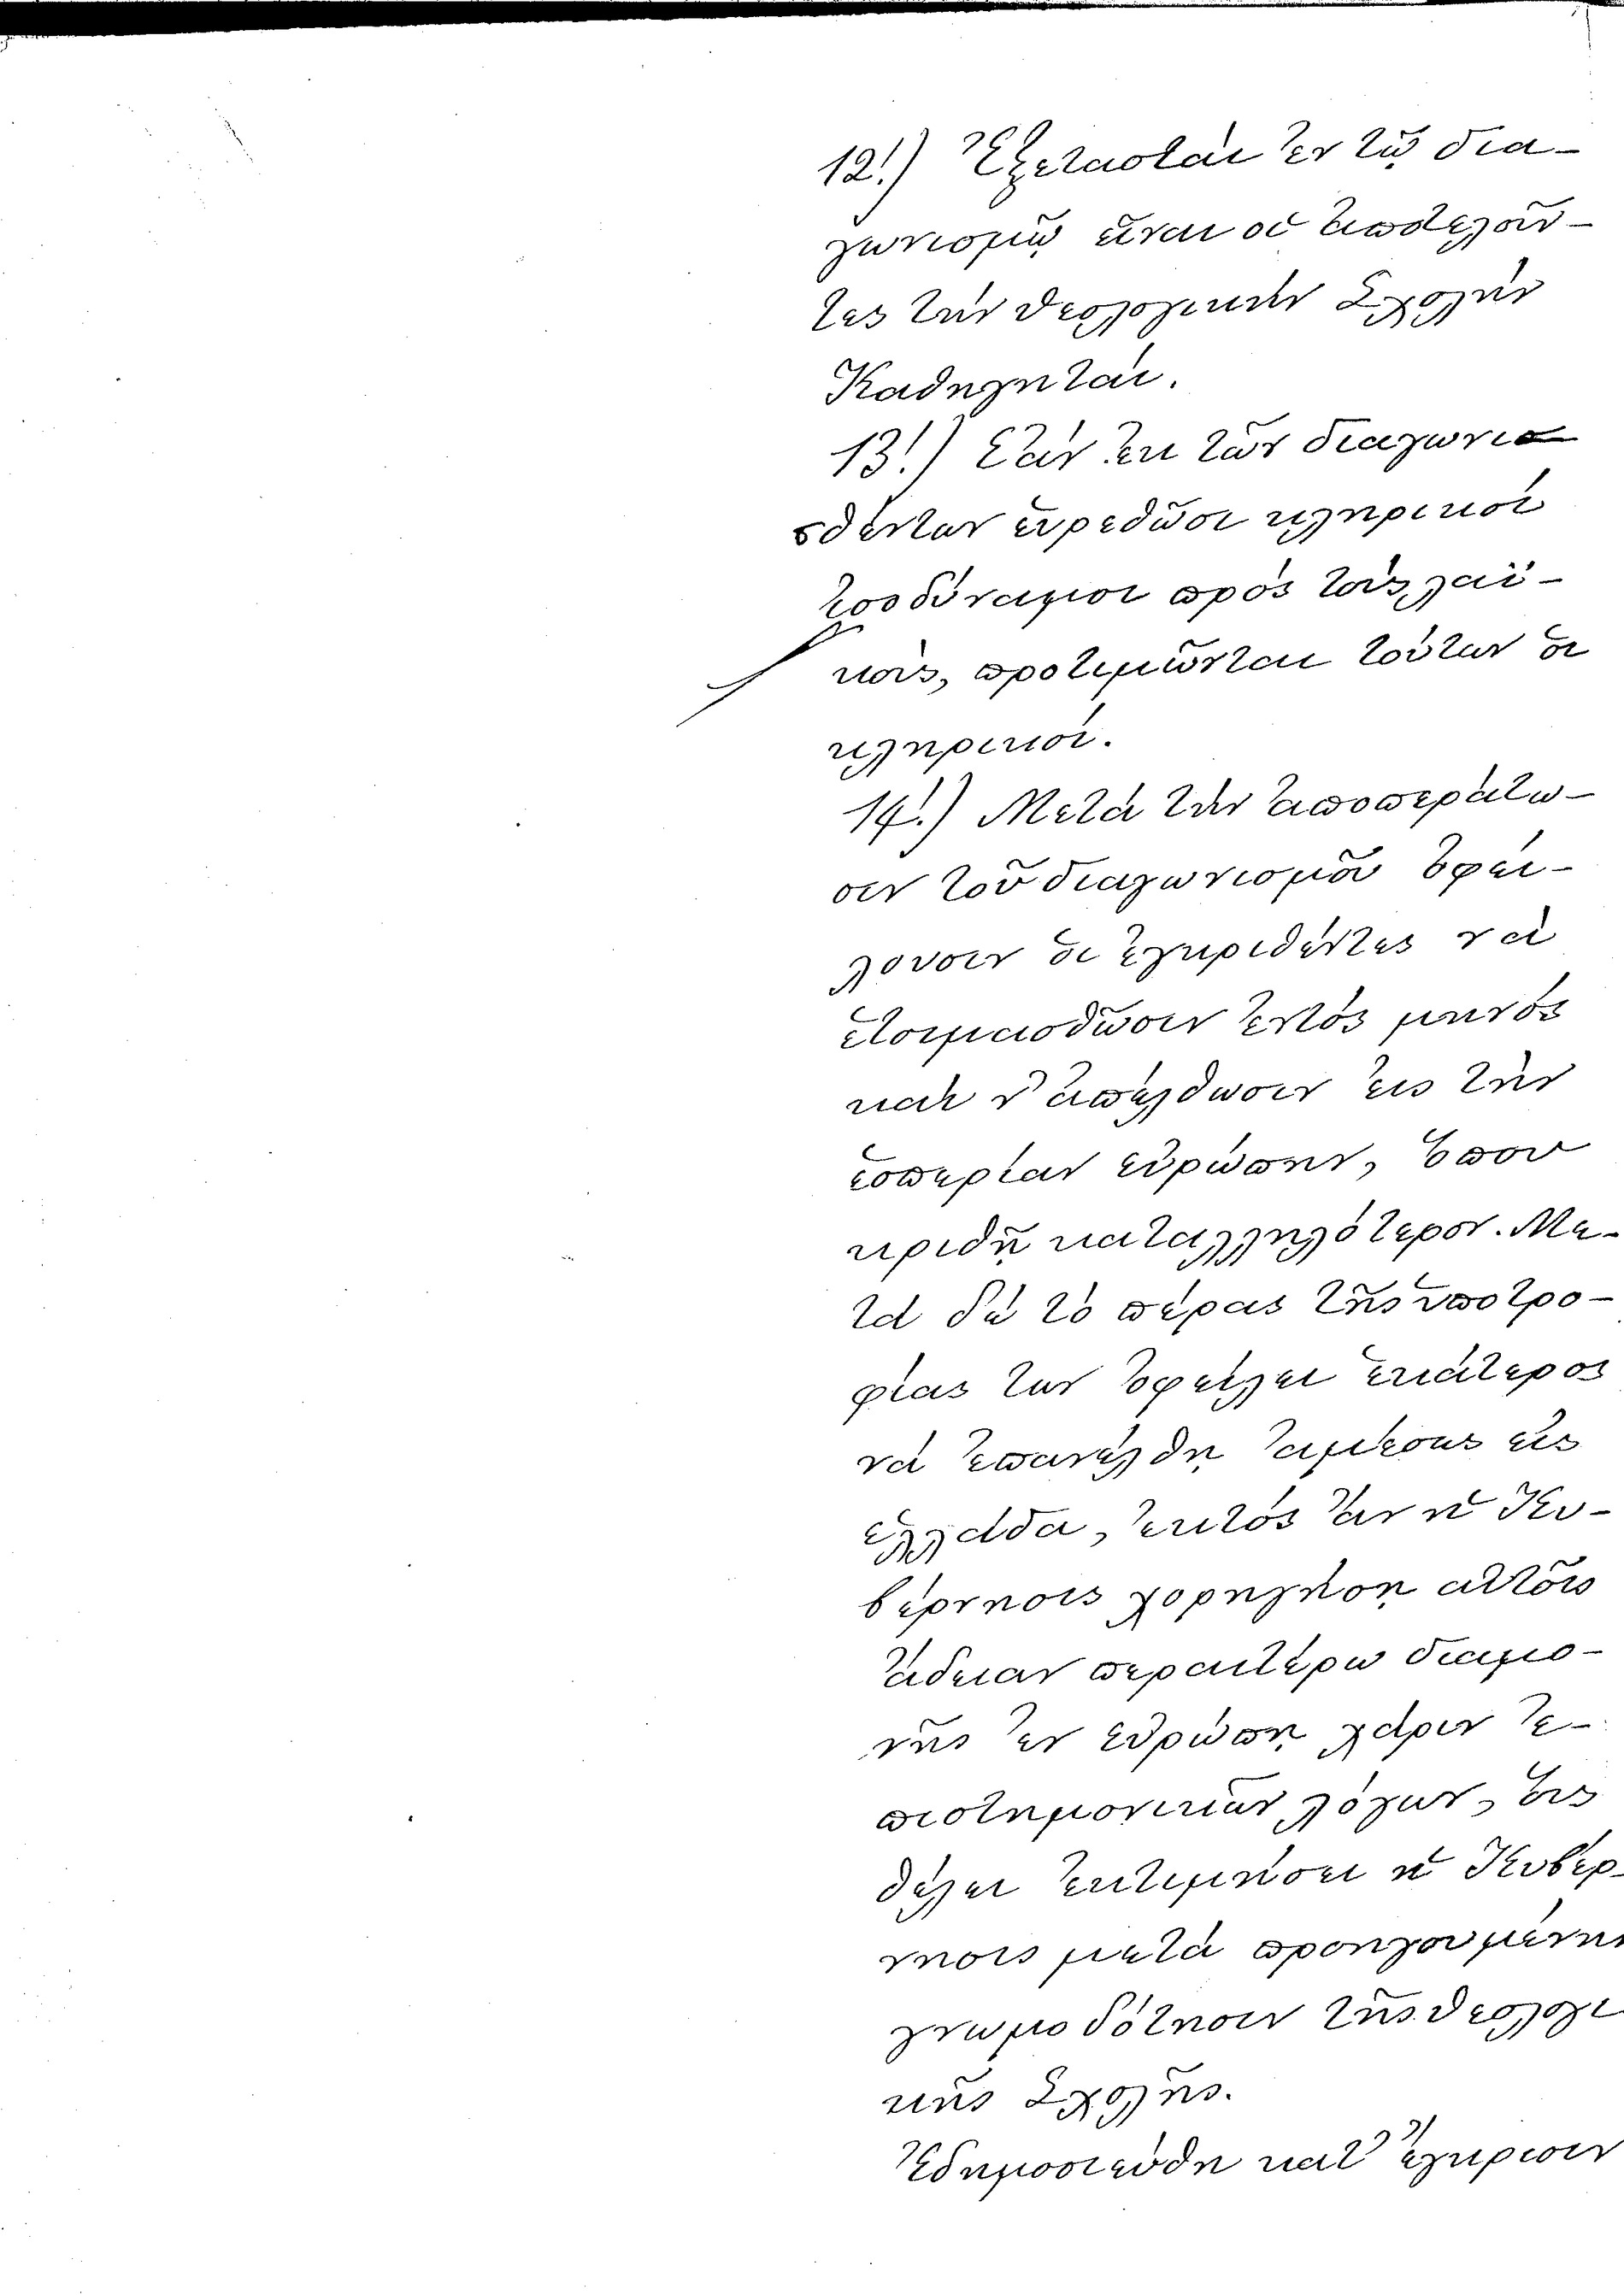 12!) Ἐξετασταὶ ἐν τῷ δια-
γωνισμῷ εἶναι οἱ ἀποτελοῦν-
τες τὴν Θεολογικὴν Σχολὴν
Καθηγηταί.
13!) Ἐὰν ἐκ τῶν διαγωνισ
σθέντων εὑρεθῶσι κληρικοὶ
ἰσοδύναμοι πρὸς τοὺς λαϊ-
κούς, προτιμῶνται τούτων οἱ
κληρικοί.
14!) Μετὰ τὴν ἀποπεράτω-
σιν τοῦ διαγωνισμοῦ ὀφεί-
λουσιν οἱ ἐγκριθέντες νὰ
ἑτοιμασθῶσιν ἐντὸς μηνὸς
καὶ ν' ἀπέλθωσιν εἰς τὴν
ἑσπερίαν Εὐρώπην, ὅπου
κριθῇ καταλληλότερον. Με-
τὰ δὲ τὸ πέρας τῆς ὑποτρο-
φίας των ὀφείλει ἑκάτερος
νὰ ἐπανέλθῃ ἀμέσως εἰς
Ἑλλάδα, ἐκτὸς ἂν ἡ Κυ-
βέρνησις χορηγήσῃ αὐτοῖς
ἄδειαν περαιτέρω διαμο-
νῆς ἐν Εὐρώπῃ χάριν ἐ-
πιστημονικῶν λόγων, οὓς
θέλει ἐκτιμήσει ἡ Κυβέρ-
νησις μετὰ προηγουμένην
γνωμοδότησιν τῆς Θεολογι
κῆς Σχολῆς.
Ἐδημοσιεύθη κατ' ἔγκρισιν